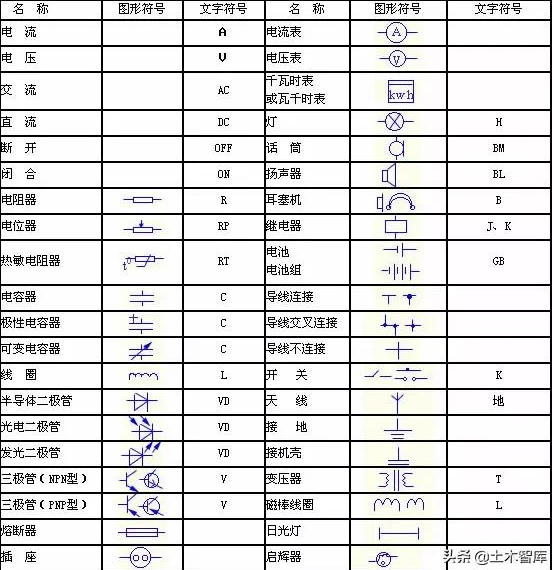 名 称 图形符号 文字符号 名 称 图形符号 文字符号
电 流 A 电流表 A
电 压 V 电压表 V
交 流 AC 千瓦时表
或瓦千时表 kwh
直 流 DC 灯 H
断 开 OFF 话 筒 BM
闭 合 ON 扬声器 BL
电阻器 R 耳塞机 B
电位器 RP 继电器 J、K
热敏电阻器 t° RT 电池
电池组 GB
电容器 C 导线连接
极性电容器 + C 导线交叉连接
可变电容器 C 导线不连接
线 圈 L 开 关 K
半导体二极管 VD 天 线 地
光电二极管 VD 接 地
发光二极管 VD 接机壳
三极管(NPN型) V 变压器 T
三极管(PNP型) V 磁棒线圈 L
熔断器 日光灯
插 座 启辉器
头条 @土木智库